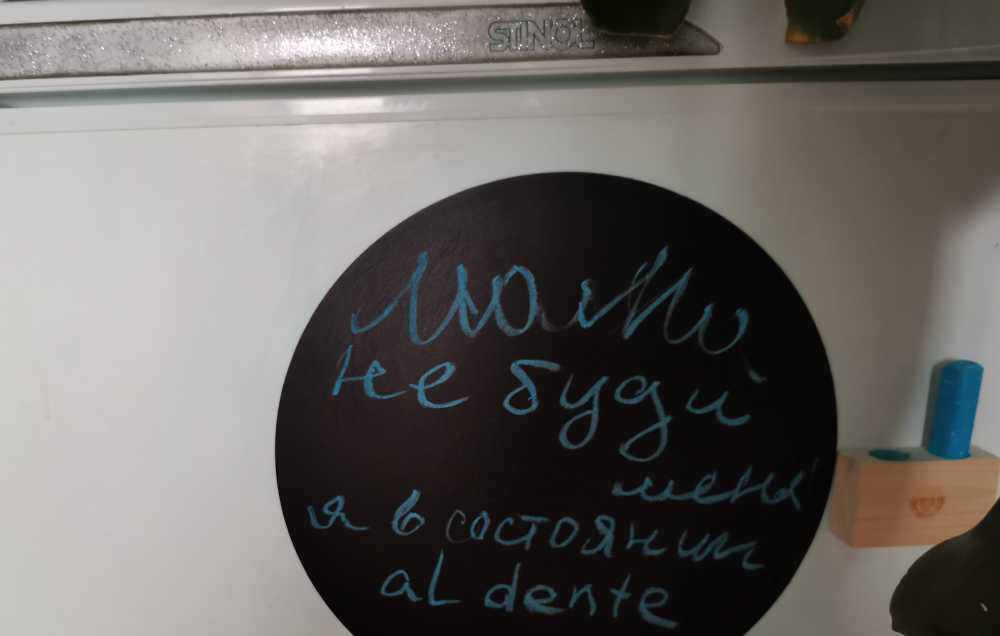 STINOL
Мама,
не буди
меня
я в состоянии
al dente